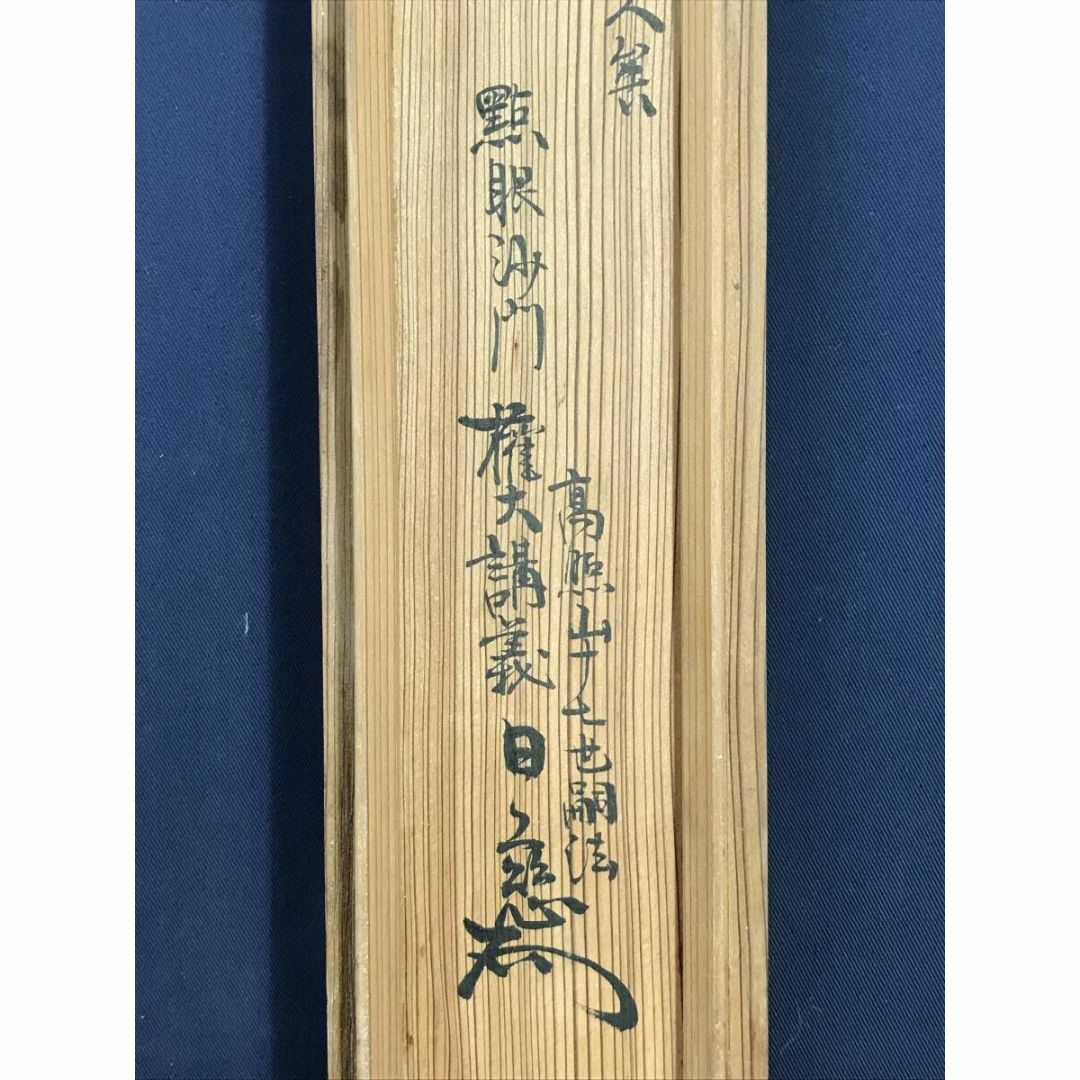 人筆
高照山十七世嗣法
點眼沙門 權大講義 日慈